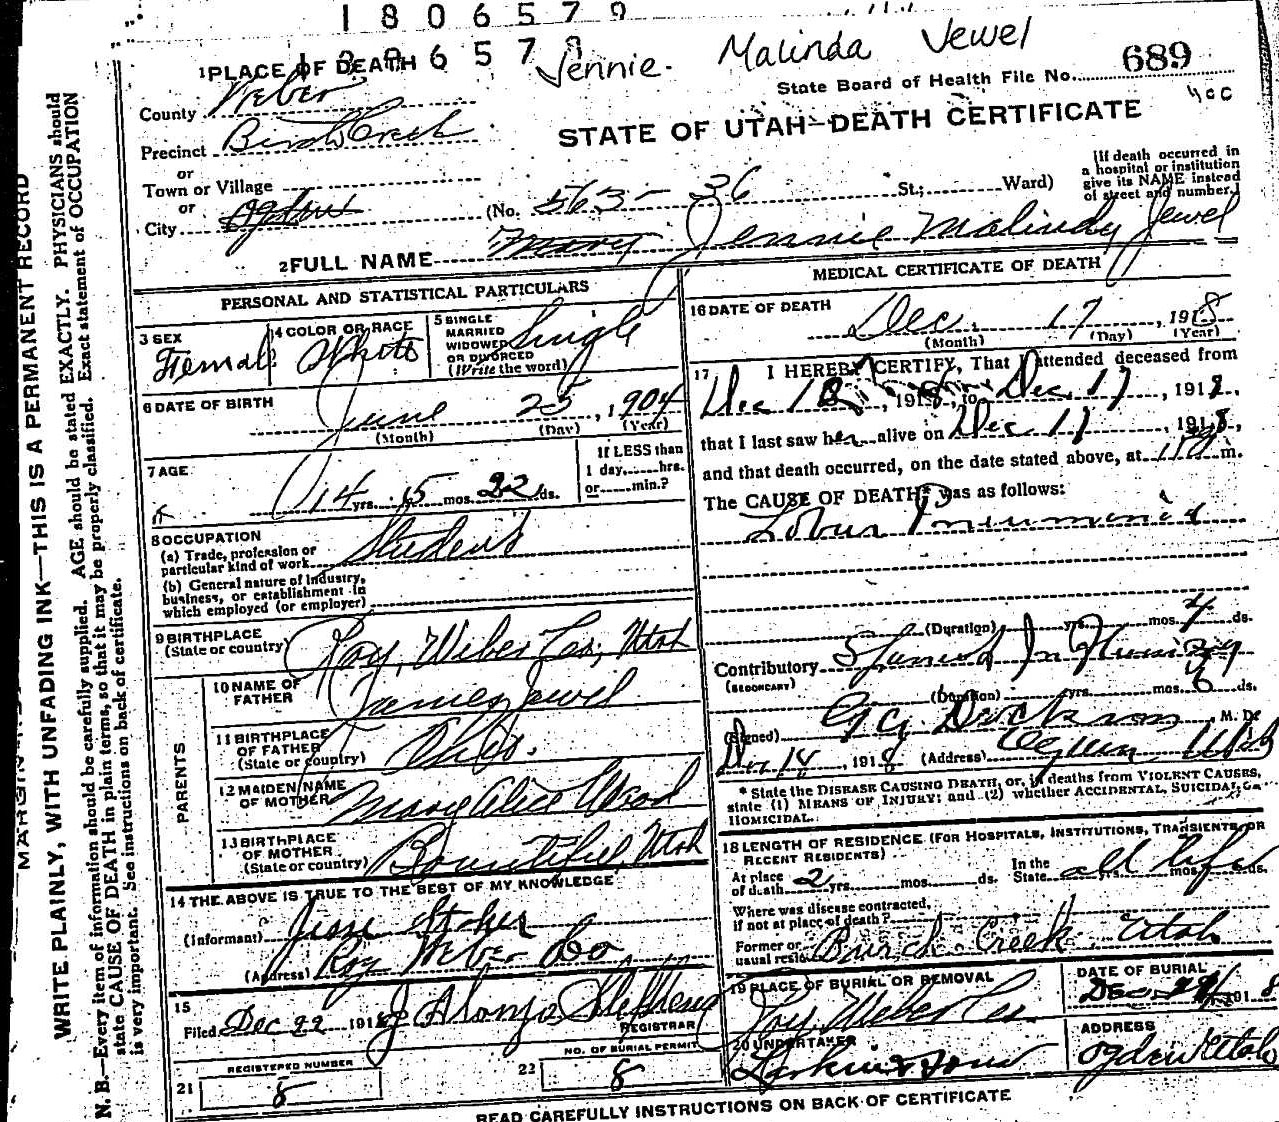 1806579
1806579
Jennie Malinda Jewel
689
State Board of Health File No.
400
1 PLACE OF DEATH
County Weber
STATE OF UTAH—DEATH CERTIFICATE
Precinct Burch Creek
or
Town or Village
or
City Ogden (No. 563 - 36 St.; Ward)
[If death occurred in a hospital or institution give its NAME instead of street and number.]
2 FULL NAME Mary Jennie Malindy Jewel
PERSONAL AND STATISTICAL PARTICULARS
3 SEX Female
4 COLOR OR RACE White
5 SINGLE MARRIED WIDOWED OR DIVORCED (Write the word) Single
6 DATE OF BIRTH
June 25, 1904
(Month) (Day) (Year)
7 AGE
14 yrs. 5 mos. 22 ds.
If LESS than 1 day, hrs. or min.?
8 OCCUPATION
(a) Trade, profession or particular kind of work Student
(b) General nature of industry, business, or establishment in which employed (or employer)
9 BIRTHPLACE (State or country) Roy, Weber Co, Utah
PARENTS
10 NAME OF FATHER James Jewel
11 BIRTHPLACE OF FATHER (State or country) Ohio.
12 MAIDEN NAME OF MOTHER Mary Alice Wood
13 BIRTHPLACE OF MOTHER (State or country) Bountiful, Utah
14 THE ABOVE IS TRUE TO THE BEST OF MY KNOWLEDGE
(Informant) Jesse Stoker
(Address) Roy Weber Co
15
Filed Dec 22 1918 J Alonzo Stephens
REGISTRAR
21 REGISTERED NUMBER 8
22 NO. OF BURIAL PERMIT 8
MEDICAL CERTIFICATE OF DEATH
16 DATE OF DEATH
Dec. 17, 1918
(Month) (Day) (Year)
17 I HEREBY CERTIFY, That I attended deceased from
Dec 1, 1918, to Dec 17, 191,
that I last saw her alive on Dec 17, 1918,
and that death occurred, on the date stated above, at m.
The CAUSE OF DEATH* was as follows:
Lobar Pneumonia
(Duration) yrs. mos. 4 ds.
Contributory Spanish Influenza
(SECONDARY)
(Duration) yrs. mos. 6 ds.
(Signed) Dickson, M. D.
Dec 18, 1918 (Address) Ogden Utah
* State the DISEASE CAUSING DEATH, or, in deaths from VIOLENT CAUSES,
state (1) MEANS OF INJURY; and (2) whether ACCIDENTAL, SUICIDAL, OR
HOMICIDAL.
18 LENGTH OF RESIDENCE (FOR HOSPITALS, INSTITUTIONS, TRANSIENTS, OR
RECENT RESIDENTS)
At place of death 2 yrs. mos. ds. In the State all life yrs. mos. ds.
Where was disease contracted, if not at place of death?
Former or usual resid. Burch Creek Utah
19 PLACE OF BURIAL OR REMOVAL
Roy, Weber Co.
DATE OF BURIAL
Dec 1918
20 UNDERTAKER
Larkin & Sons
ADDRESS
Ogden Utah
READ CAREFULLY INSTRUCTIONS ON BACK OF CERTIFICATE
WRITE PLAINLY, WITH UNFADING INK—THIS IS A PERMANENT RECORD
N. B.—Every item of information should be carefully supplied. AGE should be stated EXACTLY. PHYSICIANS should
state CAUSE OF DEATH in plain terms, so that it may be properly classified. Exact statement of OCCUPATION
is very important. See instructions on back of certificate.